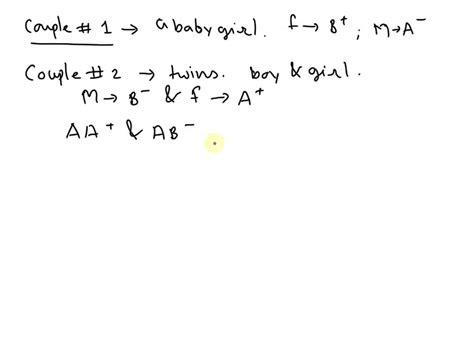 Couple # 1 → a baby girl. f → B⁺ ; M → A⁻
Couple # 2 → twins. boy & girl.
M → B⁻ & f → A⁺
AA⁺ & AB⁻